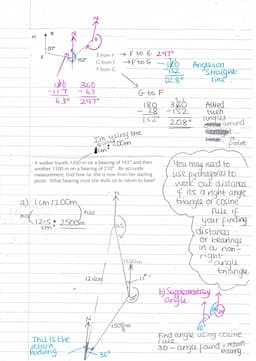 N
N
E from F → F to E 297°
G from F → F to G
F from G
117°
152°
180
-152
028°
Angles on
straight
line.
180
-117
63°
360
-63
297°
G to F
180
-28
152°
360
-152
208°
Added
both
angles
around
a
point
I'm using the
scale 1cm:200m
A walker travels 1200 m on a bearing of 165° and then
another 1500 m on a bearing of 210°. By accurate
measurement, find how far she is now from her starting
point. What bearing must she walk on to return to base?
You may need to
use pythagoras to
work out distances
if its a right angle
triangle or cosine
rule if
your finding
distances
or bearings
in a non-
right
angle
triangle.
a). 1cm:200m
12.5cm : 2500m
N
165
1200m
N
1500m
b) Supplementary
angle
30°
This is the
return
bearing
N
30°
Find angle using cosine
rule.
30 - angle found = return
bearing.